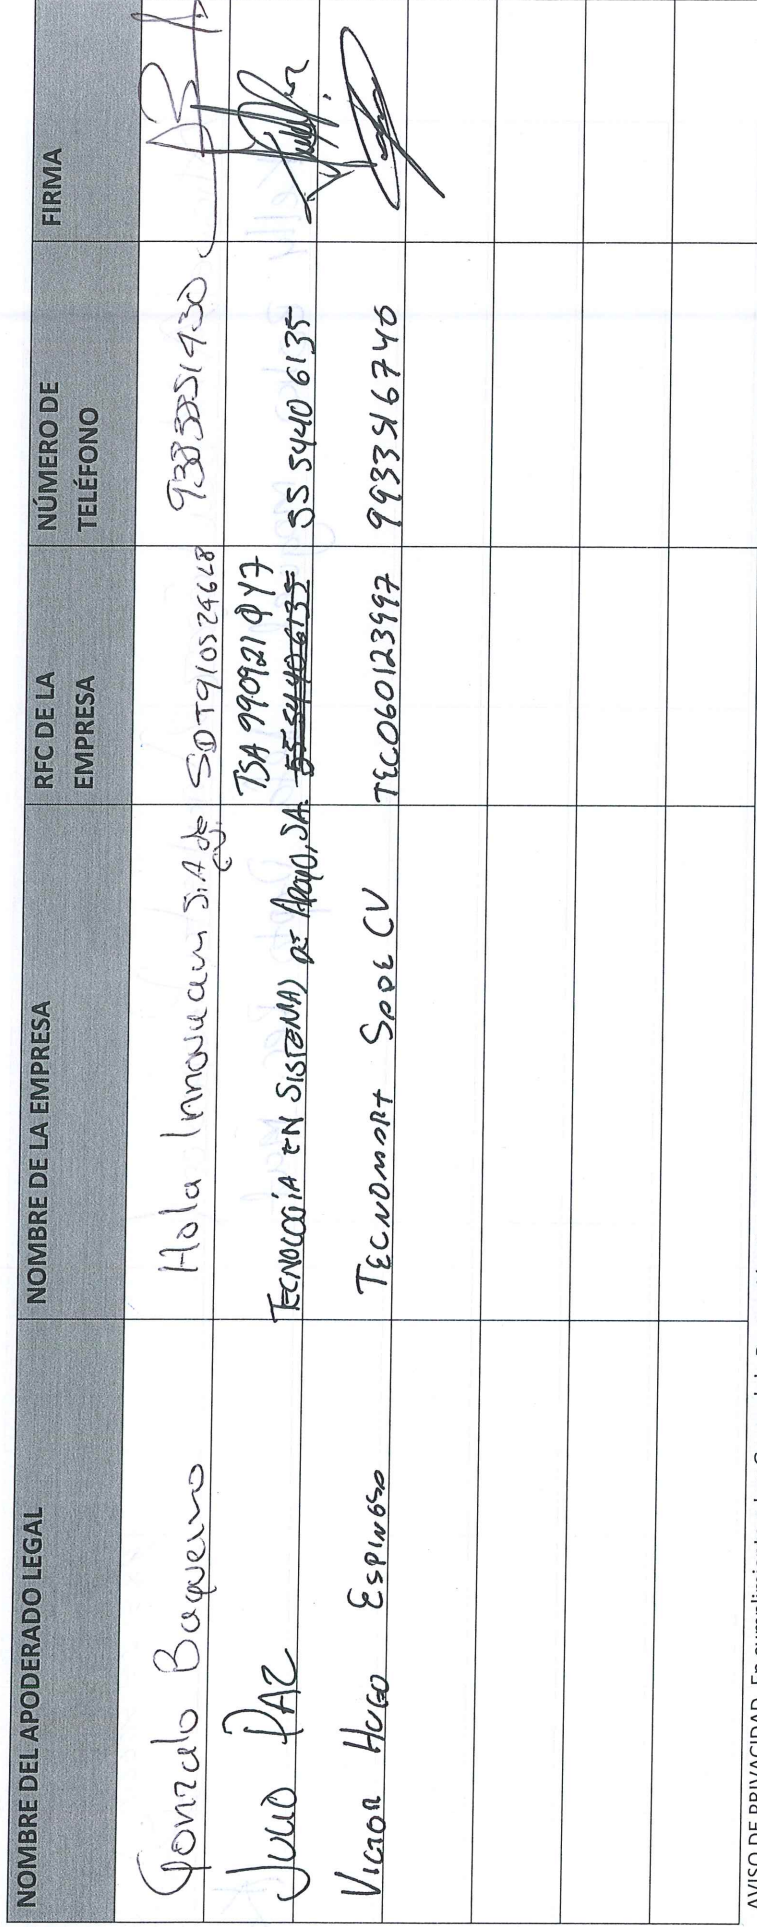 NOMBRE DEL APODERADO LEGAL NOMBRE DE LA EMPRESA RFC DE LA EMPRESA NÚMERO DE TELÉFONO FIRMA
Gonzalo Baqueiro Hola Innovacion S.A de C.V.
Julio PAZ TECNOLOGÍA EN SISTEMAS DE APOYO, SA. TSA 990921 0Y7 55 5440 6135
55 5440 6135
VICTOR HUGO ESPINOSA TECNOMART SA DE CV TEC060123997 9933516746
AVISO DE PRIVACIDAD. En cumplimiento a la